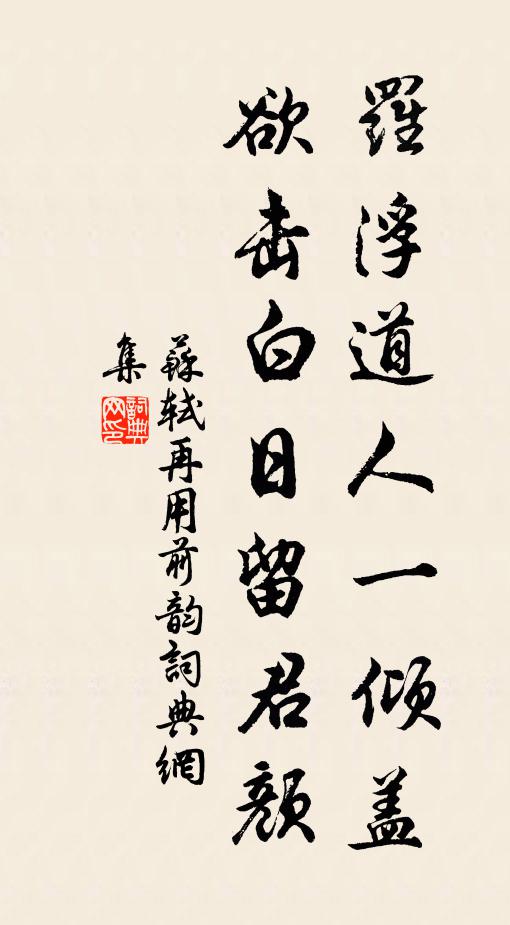 羅浮道人一傾蓋
欲击白日留君顔
蘇軾再用前韵詞典網
集
詞典網印